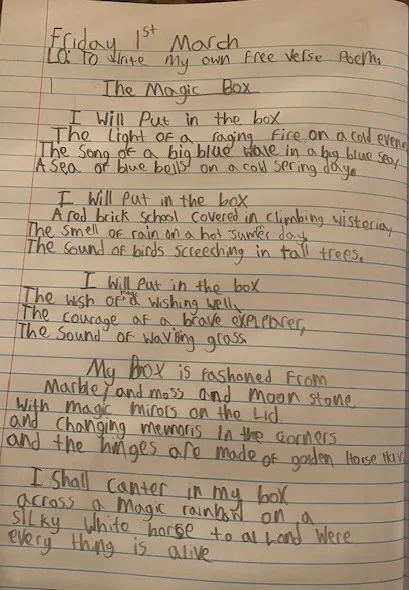 Friday 1st March
LO: To Write My own Free Verse Poem.
The Magic Box
I Will Put in the box
The Light OF a raging Fire on a cold
The Song OF a big blue Wave in a big blue Sea,
A Sea OF blue bells on a cold Sering day.
I Will Put in the box
A red brick school covered in climbing wisteria,
The smell OF rain on a hot sumer day
The Sound OF birds Screeching in tall trees.
I Will Put in the box
The Wish OF a magic wishing well,
The courage of a brave explearer,
The Sound OF Waving grass
My box is Fashoned From
Marble, and moss and Moon stone
With magic mirors on the Lid
and changing memoris In the corners
and the hinges are made of golden Horse
I Shall Canter in my box
across a magic rainbow on a
SiLky White horse to a Land Were
every thing is alive